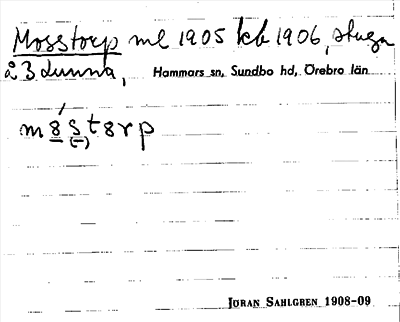 Mosstorp ml 1905 kb 1906, stuga
å 3 Lunna, Hammars sn, Sundbo hd, Örebro län
m 8́ s t 8 r p
(–)
JÖRAN SAHLGREN 1908-09